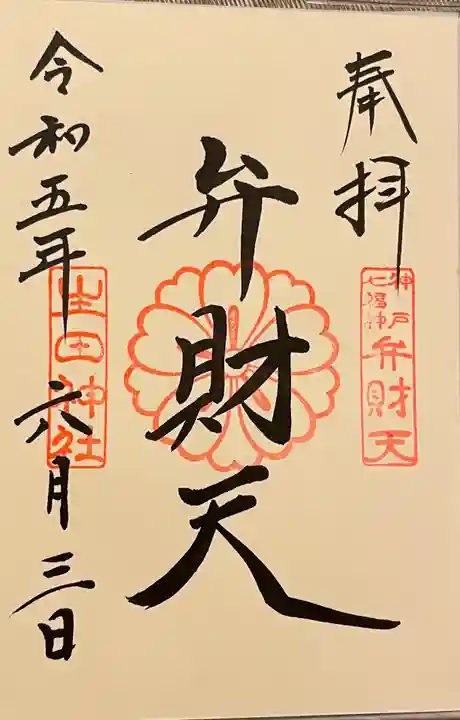 奉拝
神戸七福神
弁財天
弁財天
令和五年六月三日
生田神社